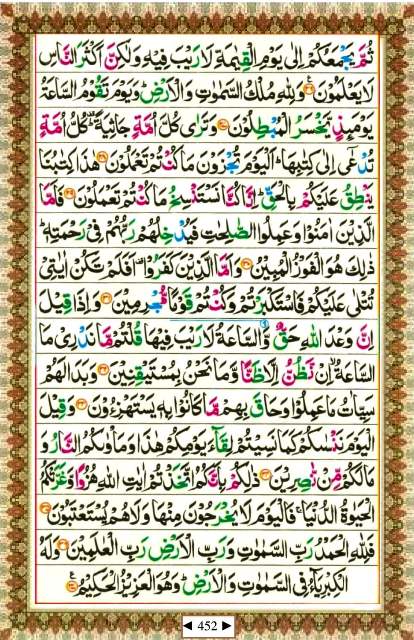 ثُمَّ يَجْمَعُكُمْ اِلٰى يَوْمِ الْقِيٰمَةِ لَا رَيْبَ فِيْهِ وَلٰكِنَّ اَكْثَرَ النَّاسِ
لَا يَعْلَمُوْنَ ۝۲۶ وَلِلّٰهِ مُلْكُ السَّمٰوٰتِ وَالْاَرْضِ ؕ وَيَوْمَ تَقُوْمُ السَّاعَةُ
يَوْمَئِذٍ يَّخْسَرُ الْمُبْطِلُوْنَ ۝۲۷ وَتَرٰى كُلَّ اُمَّةٍ جَاثِيَةً ۫ كُلُّ اُمَّةٍ
تُدْعٰۤى اِلٰى كِتٰبِهَا ؕ اَلْيَوْمَ تُجْزَوْنَ مَا كُنْتُمْ تَعْمَلُوْنَ ۝۲۸ هٰذَا كِتٰبُنَا
يَنْطِقُ عَلَيْكُمْ بِالْحَقِّ ؕ اِنَّا كُنَّا نَسْتَنْسِخُ مَا كُنْتُمْ تَعْمَلُوْنَ ۝۲۹ فَاَمَّا
الَّذِيْنَ اٰمَنُوْا وَعَمِلُوا الصّٰلِحٰتِ فَيُدْخِلُهُمْ رَبُّهُمْ فِيْ رَحْمَتِهٖ ؕ
ذٰلِكَ هُوَ الْفَوْزُ الْمُبِيْنُ ۝۳۰ وَاَمَّا الَّذِيْنَ كَفَرُوْا ۫ اَفَلَمْ تَكُنْ اٰيٰتِيْ
تُتْلٰى عَلَيْكُمْ فَاسْتَكْبَرْتُمْ وَكُنْتُمْ قَوْمًا مُّجْرِمِيْنَ ۝۳۱ وَاِذَا قِيْلَ
اِنَّ وَعْدَ اللّٰهِ حَقٌّ وَّالسَّاعَةُ لَا رَيْبَ فِيْهَا قُلْتُمْ مَّا نَدْرِيْ مَا
السَّاعَةُ ۙ اِنْ نَّظُنُّ اِلَّا ظَنًّا وَّمَا نَحْنُ بِمُسْتَيْقِنِيْنَ ۝۳۲ وَبَدَا لَهُمْ
سَيِّاٰتُ مَا عَمِلُوْا وَحَاقَ بِهِمْ مَّا كَانُوْا بِهٖ يَسْتَهْزِءُوْنَ ۝۳۳ وَقِيْلَ
الْيَوْمَ نَنْسٰىكُمْ كَمَا نَسِيْتُمْ لِقَآءَ يَوْمِكُمْ هٰذَا وَمَاْوٰىكُمُ النَّارُ وَ
مَا لَكُمْ مِّنْ نّٰصِرِيْنَ ۝۳۴ ذٰلِكُمْ بِاَنَّكُمُ اتَّخَذْتُمْ اٰيٰتِ اللّٰهِ هُزُوًا وَّغَرَّتْكُمُ
الْحَيٰوةُ الدُّنْيَا ۚ فَالْيَوْمَ لَا يُخْرَجُوْنَ مِنْهَا وَلَا هُمْ يُسْتَعْتَبُوْنَ ۝۳۵
فَلِلّٰهِ الْحَمْدُ رَبِّ السَّمٰوٰتِ وَرَبِّ الْاَرْضِ رَبِّ الْعٰلَمِيْنَ ۝۳۶ وَلَهُ
الْكِبْرِيَآءُ فِي السَّمٰوٰتِ وَالْاَرْضِ ۪ وَهُوَ الْعَزِيْزُ الْحَكِيْمُ ۝۳۷
◄ 452 ►